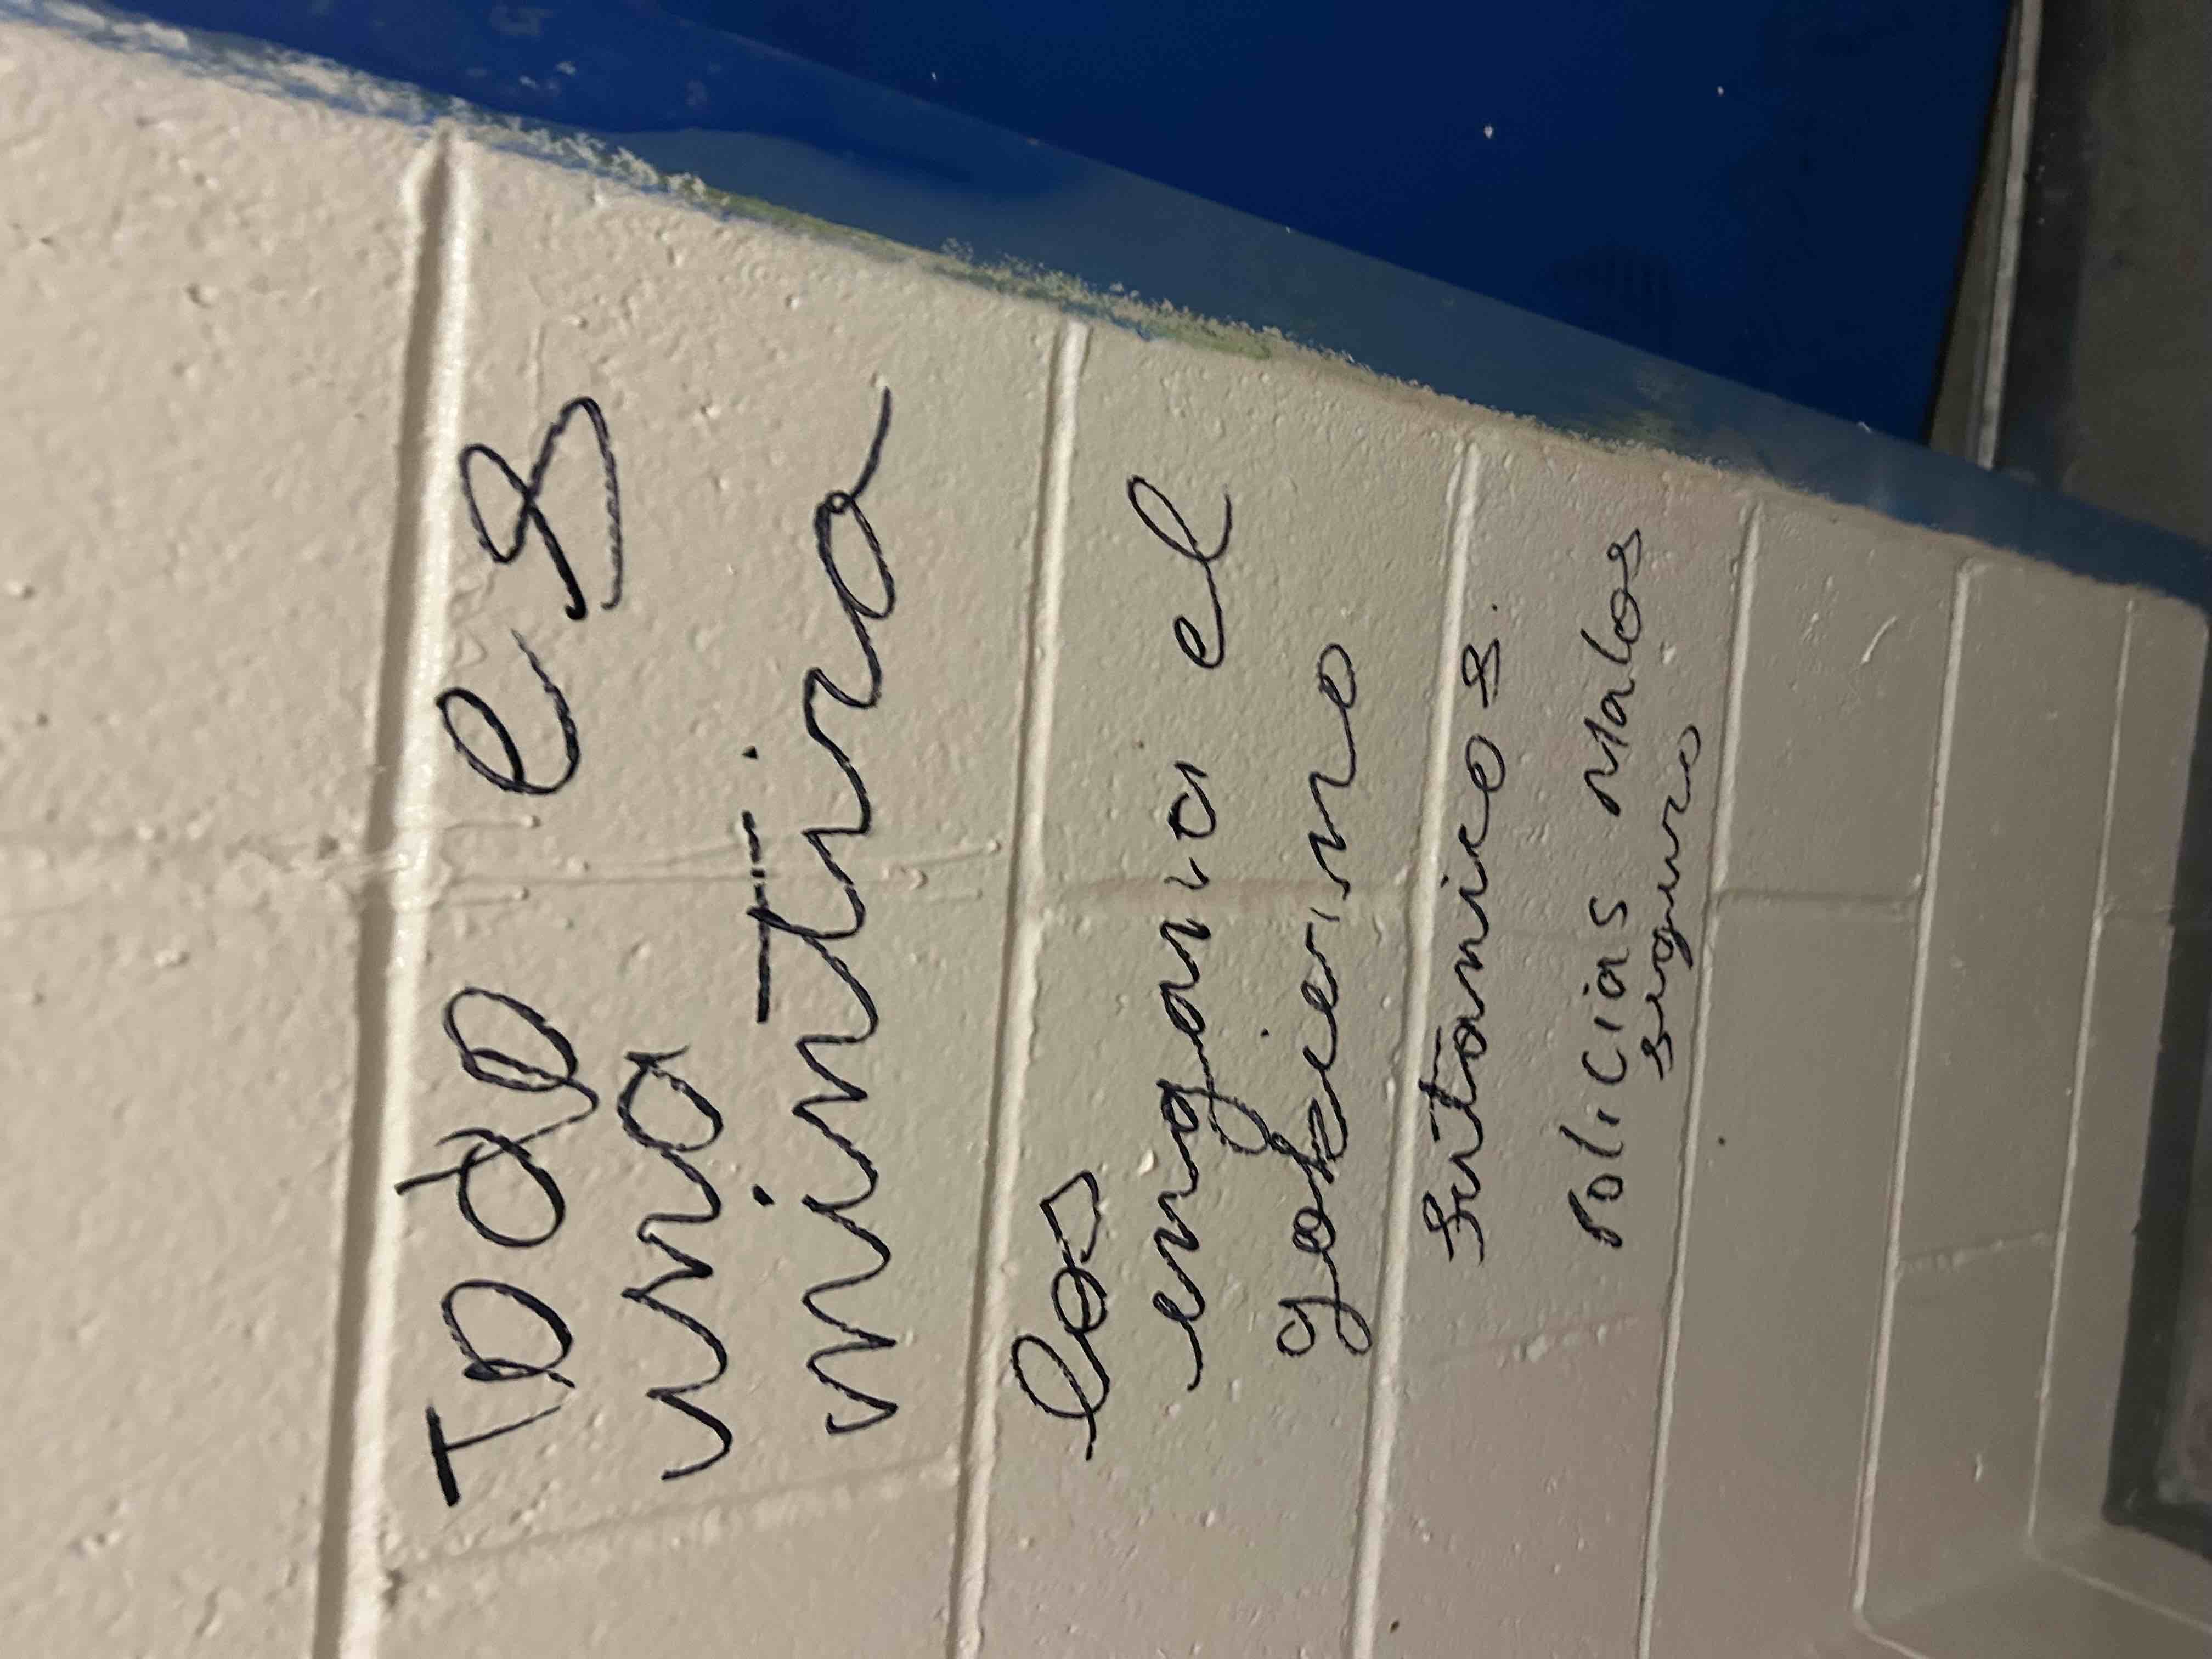 Todo es
una
mintira
los
engania el
gobierno
Satanicos.
Policias Malos
seguro